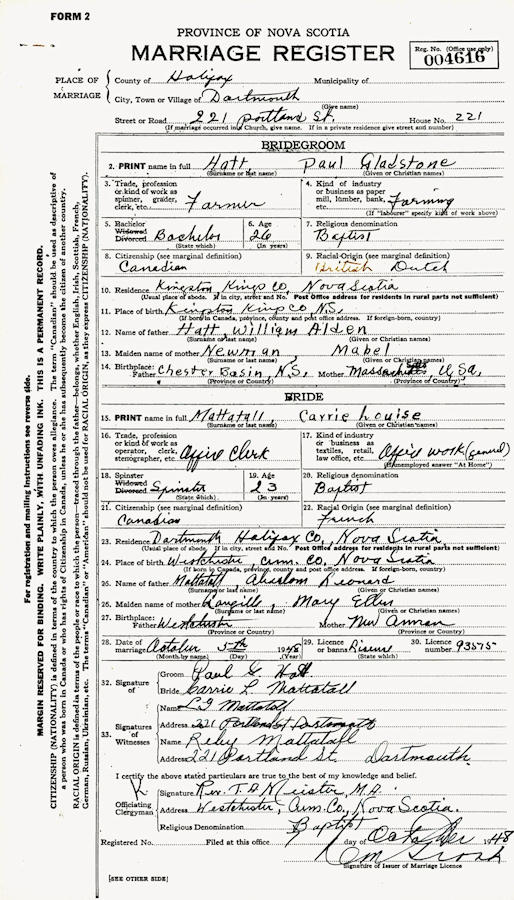 FORM 2
PROVINCE OF NOVA SCOTIA
MARRIAGE REGISTER
Reg. No. (Office use only)
004616
PLACE OF MARRIAGE
County of Halifax Municipality of
City, Town or Village of Dartmouth
(Give name)
Street or Road 221 Portland St. House No. 221
(If marriage occurred in a Church, give name. If in a private residence give street and number)
BRIDEGROOM
2. PRINT name in full Hatt, Paul Gladstone
(Surname or last name) (Given or Christian names)
3. Trade, profession or kind of work as spinner, grader, clerk, etc. Farmer
4. Kind of industry or business as paper mill, lumber, bank, etc. Farming
(If "labourer" specify kind of work above)
5. Bachelor Widowed Divorced Bachelor
(State which)
6. Age 26
(In years)
7. Religious denomination Baptist
8. Citizenship (see marginal definition) Canadian
9. Racial Origin (see marginal definition) British Dutch
10. Residence Kingston, Kings Co, Nova Scotia
(Usual place of abode. If in city, street and No. Post Office address for residents in rural parts not sufficient)
11. Place of birth Kingston, Kings Co N.S.
(If born in Canada, province, county and post office address. If foreign-born, country)
12. Name of father Hatt, William Alden
(Surname or last name) (Given or Christian names)
13. Maiden name of mother Newman Mabel
(Surname or last name) (Given or Christian names)
14. Birthplace: Father Chester Basin, N.S. Mother Massachusetts, U.S.A.
(Province or Country) (Province or Country)
BRIDE
15. PRINT name in full Mattatall, Carrie Louise
(Surname or last name) (Given or Christian names)
16. Trade, profession or kind of work as operator, clerk, stenographer, etc. Office Clerk
17. Kind of industry or business as textiles, retail, law office, etc. Office work (general)
(If unemployed answer "At Home")
18. Spinster Widowed Divorced Spinster
(State which)
19. Age 23
(In years)
20. Religious denomination Baptist
21. Citizenship (see marginal definition) Canadian
22. Racial Origin (see marginal definition) French
23. Residence Dartmouth Halifax Co, Nova Scotia
(Usual place of abode. If in city, street and No. Post Office address for residents in rural parts not sufficient)
24. Place of birth Westchester, Cum. Co. Nova Scotia
(If born in Canada, province, county and post office address. If foreign-born, country)
25. Name of father Mattatall Leonard
(Surname or last name) (Given or Christian names)
26. Maiden name of mother Langille, Mary Ellen
(Surname or last name) (Given or Christian names)
27. Birthplace: Father Westchester Mother New Annan
(Province or Country) (Province or Country)
28. Date of marriage October 5th 1948
(Month by name) (Day) (Year)
29. Licence or banns License
30. Licence number 93575
32. Signature of
Groom Paul G. Hatt
Bride Carrie L. Mattatall
33. Signatures of Witnesses
Name Mattatall
Address 221 Portland St Dartmouth
Name Mattatall
Address 221 Portland St. Dartmouth
I certify the above stated particulars are true to the best of my knowledge and belief.
Officiating Clergyman
Signature Rev. T. A. Meister, M.A.
Address Westchester, Cum. Co., Nova Scotia.
Religious Denomination Baptist
Registered No. Filed at this office day of October 1948
Signature of Issuer of Marriage Licence
[SEE OTHER SIDE]
For registration and mailing instructions see reverse side.
MARGIN RESERVED FOR BINDING. WRITE PLAINLY, WITH UNFADING INK. THIS IS A PERMANENT RECORD.
CITIZENSHIP (NATIONALITY) is defined in terms of the country to which the person owes allegiance. The term "Canadian" should be used as descriptive of
a person who was born in Canada or who has rights of Citizenship in Canada, unless he or she has subsequently become the citizen of another country.
RACIAL ORIGIN is defined in terms of the people or race to which the person—traced through the father—belongs, whether English, Irish, Scottish, French,
German, Russian, Ukrainian, etc. The terms "Canadian" or "American" should not be used for RACIAL ORIGIN, as they express CITIZENSHIP (NATIONALITY).